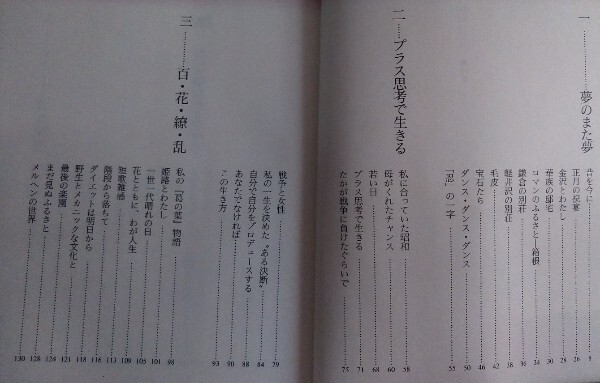 一……夢のまた夢
昔を今に
正月の祝宴
金沢とわたし
華族の邸宅
ロマンのふるさと―箱根
鎌倉の別荘
軽井沢の別荘
毛皮
宝石たち
ダンス・ダンス・ダンス
「忍」の一字 55
二……プラス思考で生きる
私に合っていた昭和 58
母がくれたチャンス 60
若い日 68
プラス思考で生きる 71
たかが戦争に負けたぐらいで 75
戦争と女性 79
私の一生を決めた〝ある決断〟 84
自分で自分をプロデュースする 88
あなたでなければ 90
この生き方 93
三……百・花・繚・乱
私の「葛の葉」物語 98
姫路とわたし 101
一世一代晴れの日 105
花とともに、わが人生 109
短歌雑感 113
階段から落ちて 116
ダイエットは明日から 118
野生とメカニックな文化と 121
最後の楽園 124
まだ見ぬふるさと 128
メルヘンの世界 130